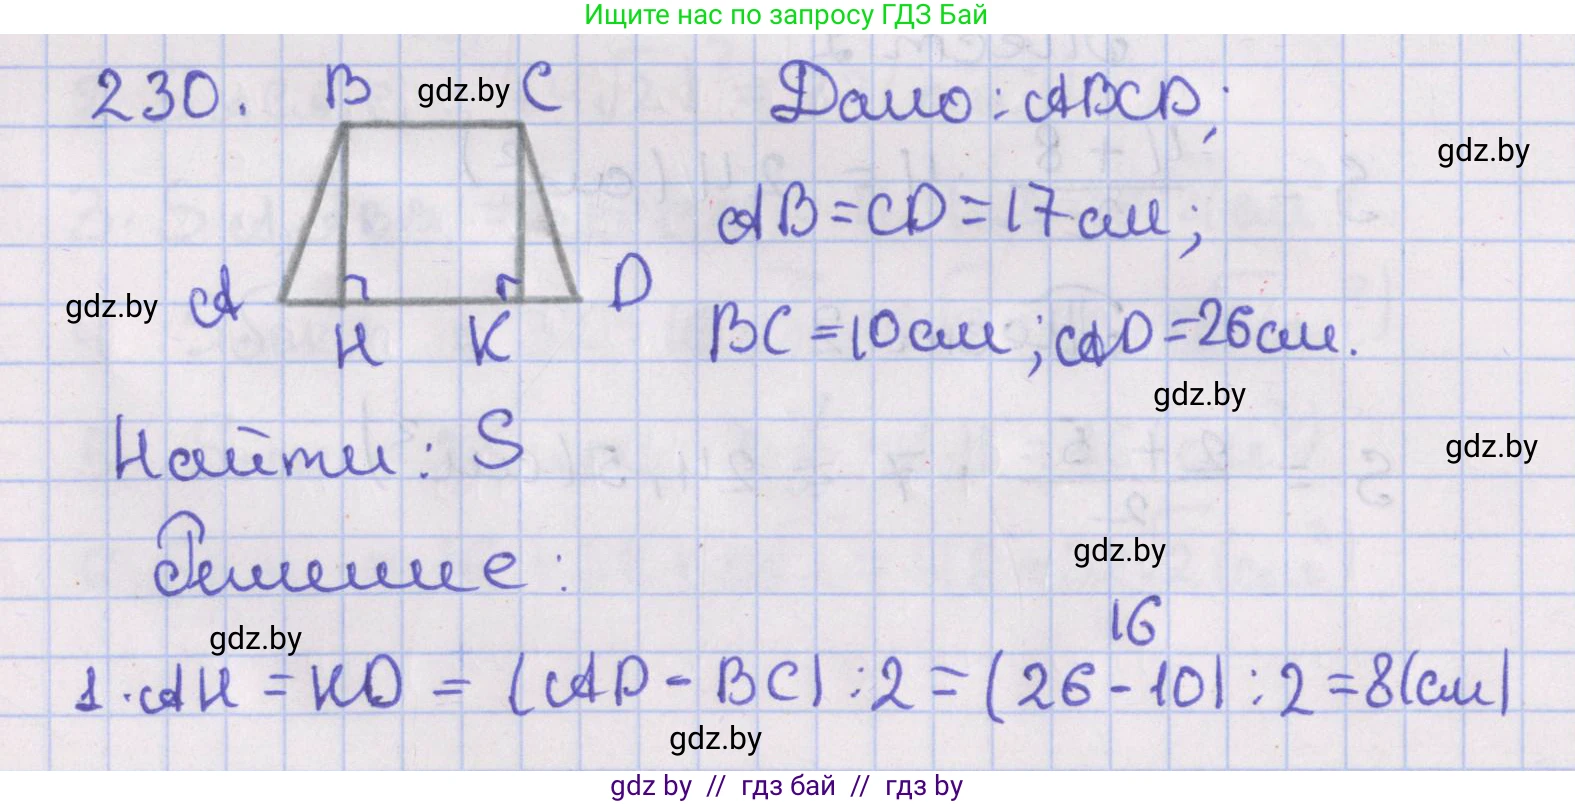 Ищите нас по запросу ГДЗ Бай
230. B gdz.by C Дано: ABCD;
gdz.by
AB = CD = 17 см;
gdz.by A D
H K BC = 10 см; AD = 26 см.
gdz.by
Найти: S gdz.by
Решение: gdz.by
gdz.by 16
1. AH = KD = (AD - BC) : 2 = (26 - 10) : 2 = 8 (см)
gdz.by
gdz by // гдз бай // gdz by